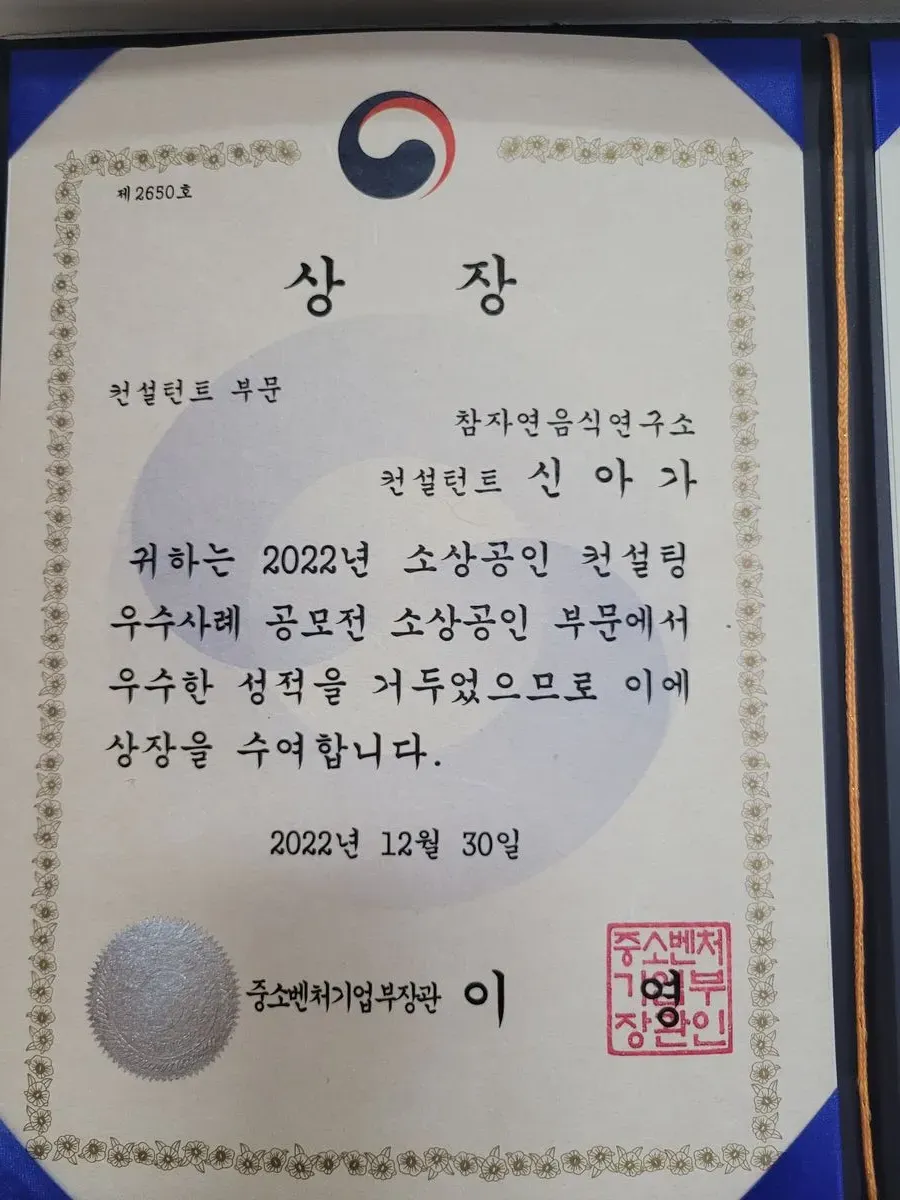 제2650호
상 장
컨설턴트 부문
참자연음식연구소
컨설턴트 신 아 가
귀하는 2022년 소상공인 컨설팅
우수사례 공모전 소상공인 부문에서
우수한 성적을 거두었으므로 이에
상장을 수여합니다.
2022년 12월 30일
중소벤처기업부장관 이 영
중소벤처
기업부
장관인